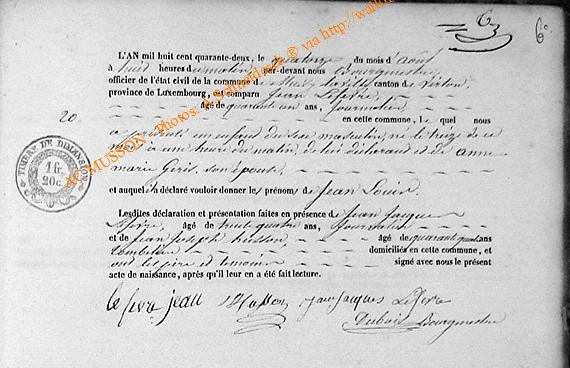 6
6e
L'AN mil huit cent quarante-deux, le quatorze du mois d'août
à huit heures du matin, par-devant nous Bourgmestre
officier de l'état civil de la commune de Mussy canton de Virton,
province de Luxembourg, est comparu Jean Lefevre
âgé de quarante un ans, Journalier
20. en cette commune, lequel nous
a présenté un enfant du sexe masculin, né le treize de ce
mois à une heure du matin, de lui déclarant et de anne
marie Geris, son épouse,
et auquel il a déclaré vouloir donner les prénoms de Jean Louis
Lesdites déclaration et présentation faites en présence de Jean Jacques
Lefevre, âgé de quatre ans, Journalier
et de Jean Joseph husson âgé de quarante quatre ans
domiciliés en cette commune, et
ont les père et témoins signé avec nous le présent
acte de naissance, après qu'il leur en a été fait lecture.
lefevre jean Husson jean jacques Lefevre
Dubois Bourgmestre
TIMBRE DE DIMENSION
1 fr.
20 c.
MUSSON Photos © via http://